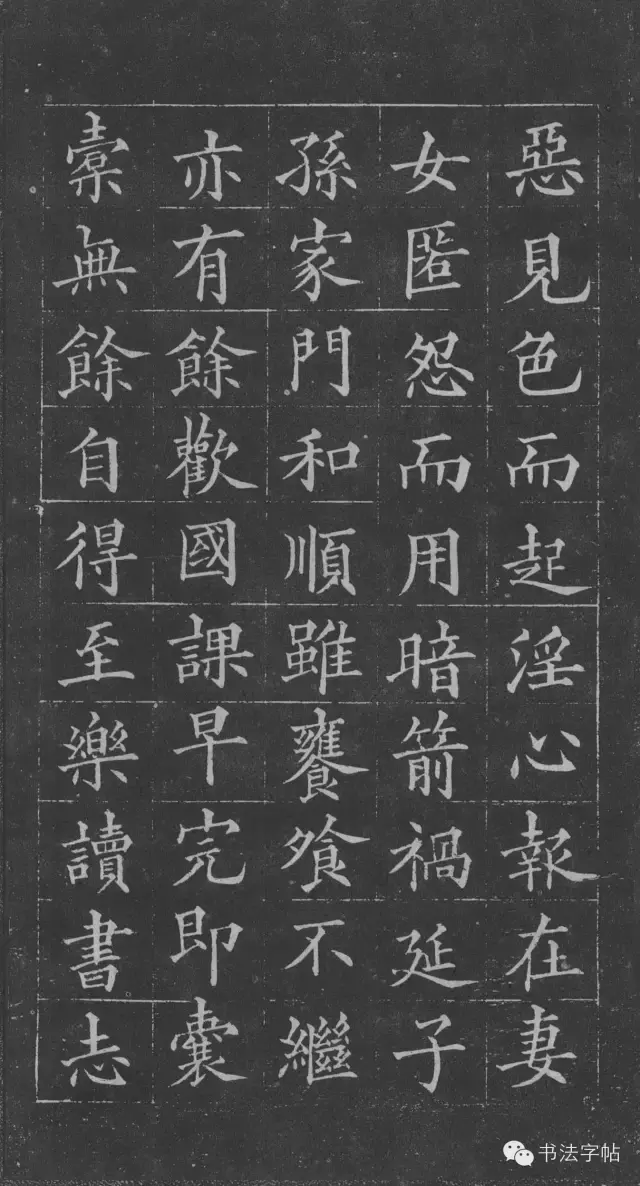 惡見色而起淫心報在妻
女匿怨而用暗箭禍延子
孫家門和順雖饔飧不繼
亦有餘歡國課早完即囊
橐無餘自得至樂讀書志
书法字帖